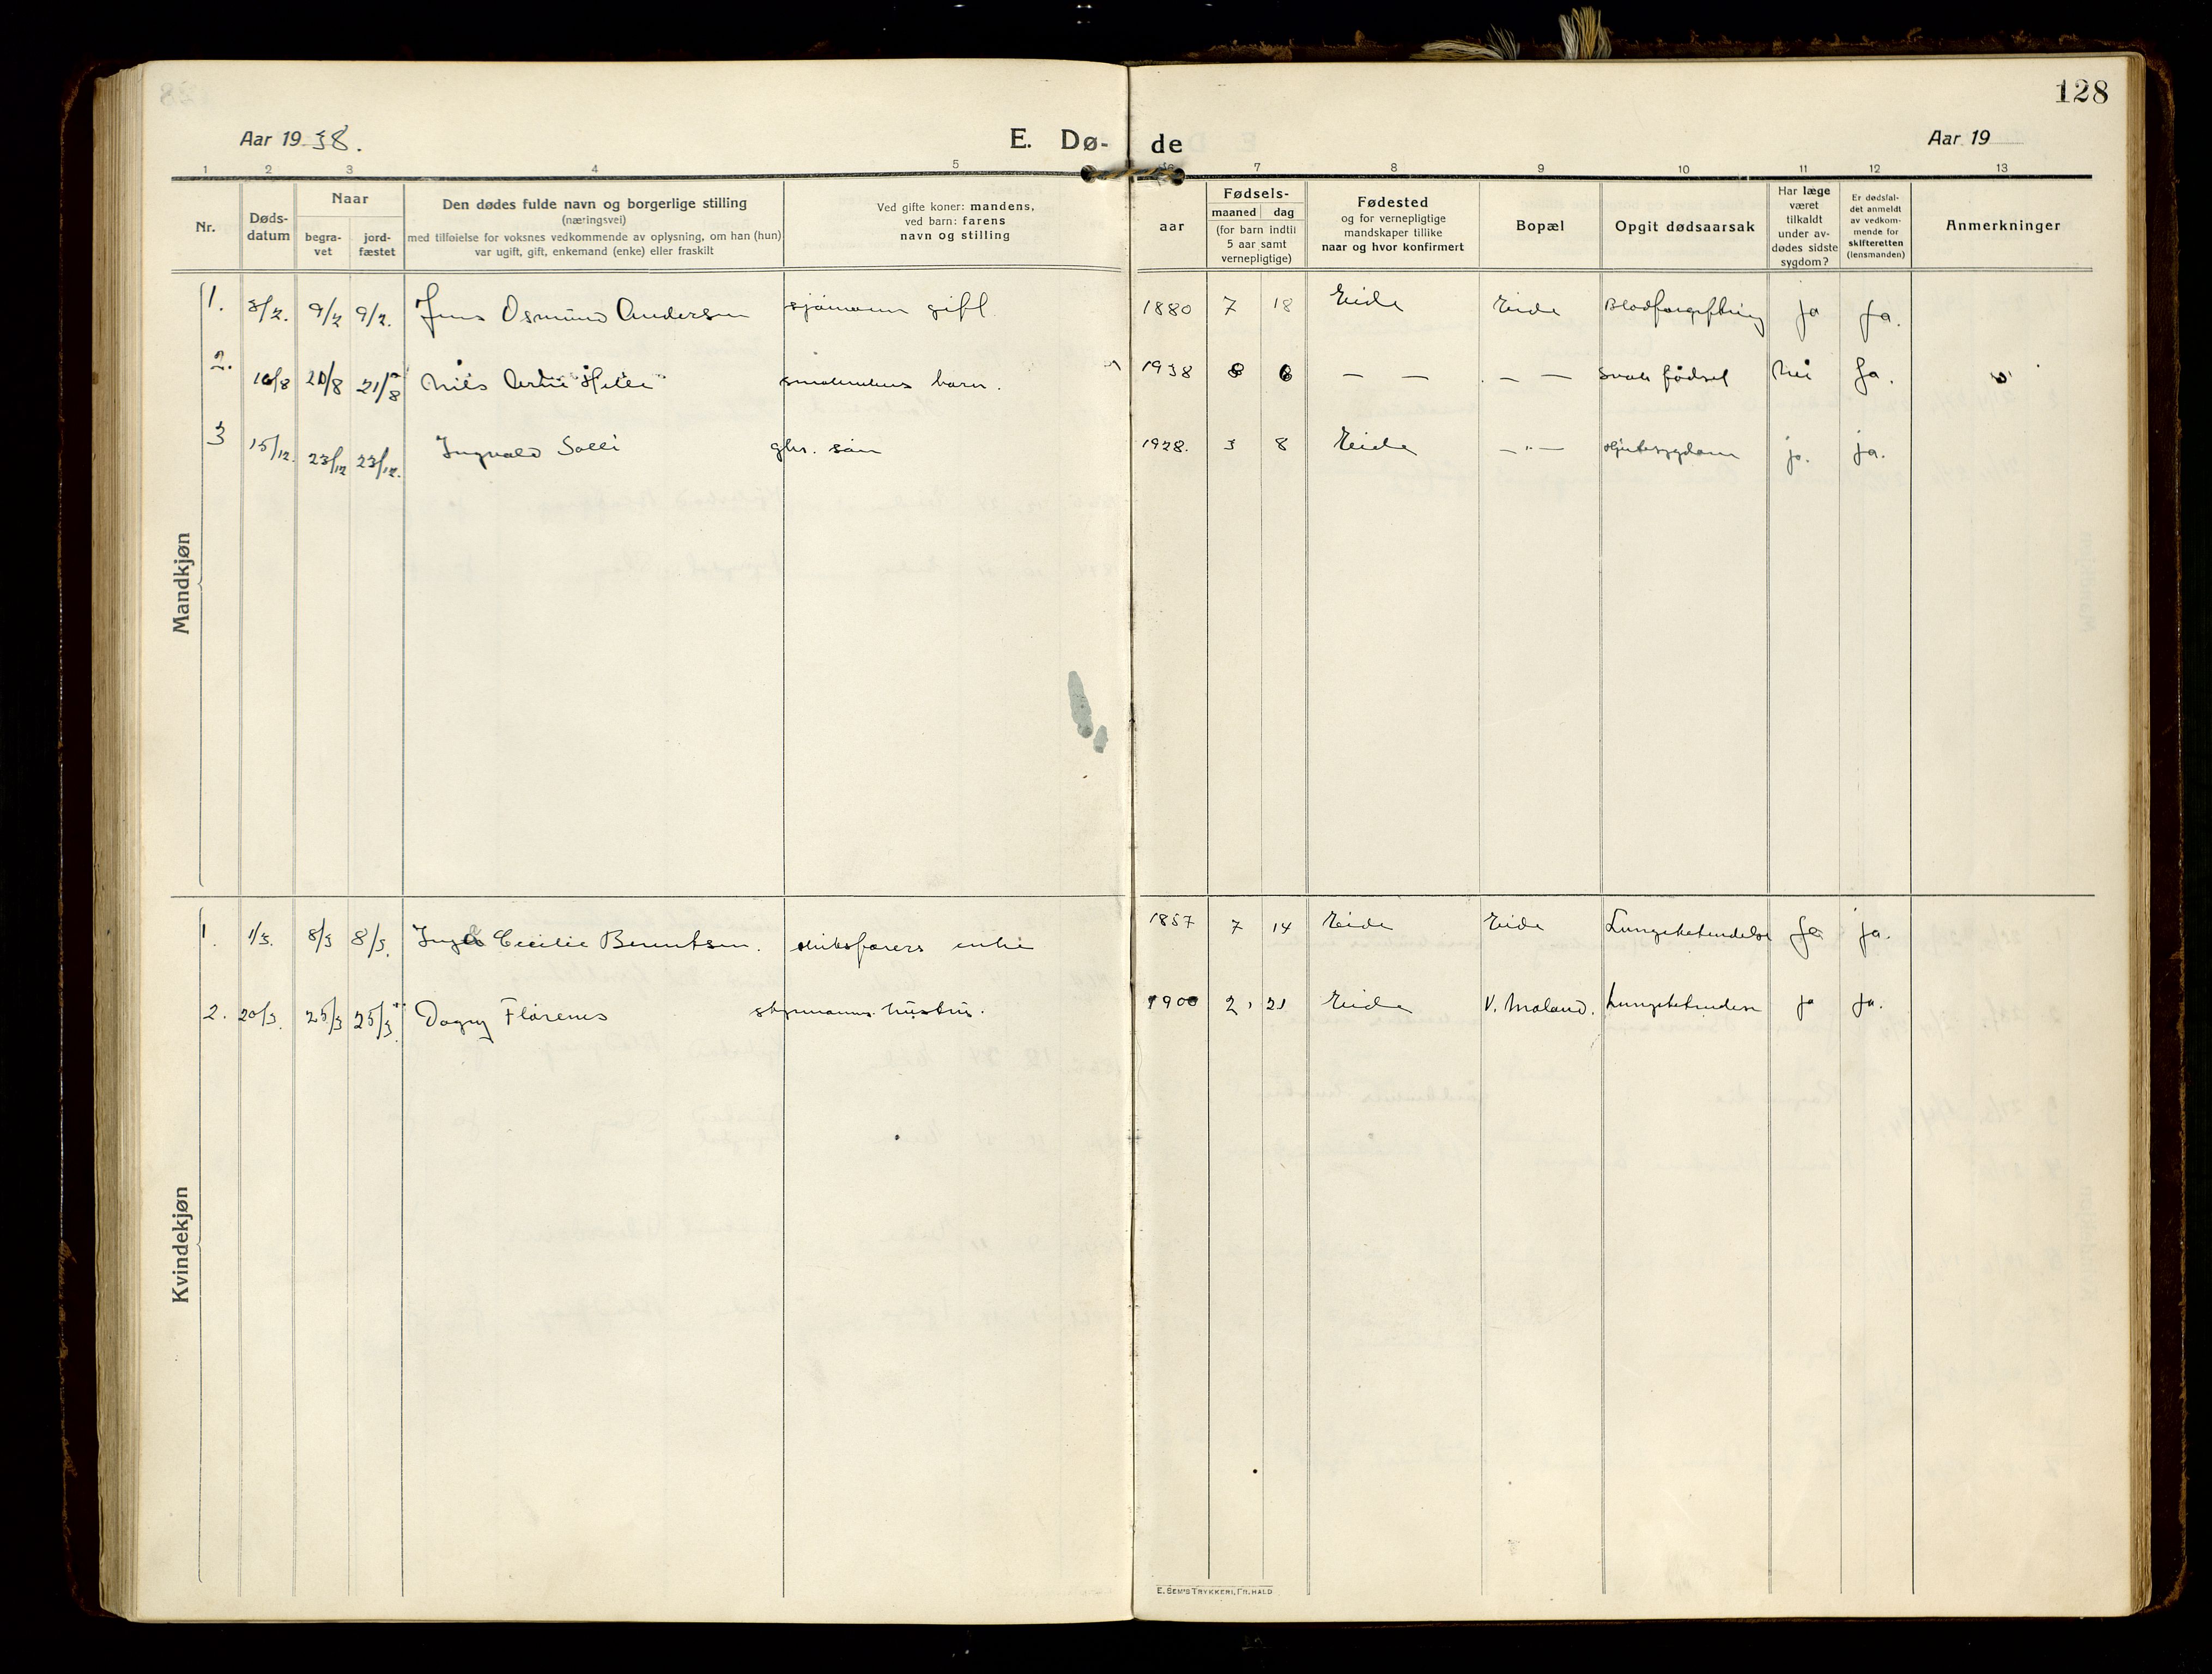 128
Aar 19 38.
E. Dø-
de
Aar 19
1 2 3 4 5 6 7 8 9 10 11 12 13
Nr.
Døds-
datum
Naar
begra-
vet
jord-
fæstet
Den dødes fulde navn og borgerlige stilling
(næringsvei)
med tilføielse for voksnes vedkommende av oplysning, om han (hun)
var ugift, gift, enkemand (enke) eller fraskilt
Ved gifte koner: mandens,
ved barn: farens
navn og stilling
aar
Fødsels-
maaned dag
(for barn indtil
5 aar samt
vernepligtige)
Fødested
og for vernepligtige
mandskaper tillike
naar og hvor konfirmert
Bopæl
Opgit dødsaarsak
Har læge
været
tilkaldt
under av-
dødes sidste
sygdom?
Er dødsfal-
det anmeldt
av vedkom-
mende for
skifteretten
(lensmanden)
Anmerkninger
Mandkjøn
1. 3/2. 9/2 9/2. Jens Osmund Andersen sjømann gift 1880 7 18 Eide Eide Blodforgiftning ja ja.
2. 10/8 21/8 21/8 Nils Arne Helle barn. 1938 8 6 — — — — svak fødsel Nei ja.
3 15/12. 23/12 23/12. Ingvald Solli gbr. søn 1928. 3 8 Eide — " — Hjertesygdom ja. ja.
Kvindekjøn
1. 1/3. 8/3 8/3. Inga Cecilie Berntsen. skibsførers enke 1857 7 14 Eide Eide Lungebetendelse ja ja.
2. 20/3. 25/3 25/3 Dagny Florenes styrmanns hustru. 1900 2, 21 Eide V. Moland. Lungebetendelse ja ja.
E. SEM'S TRYKKERI, FR. HALD